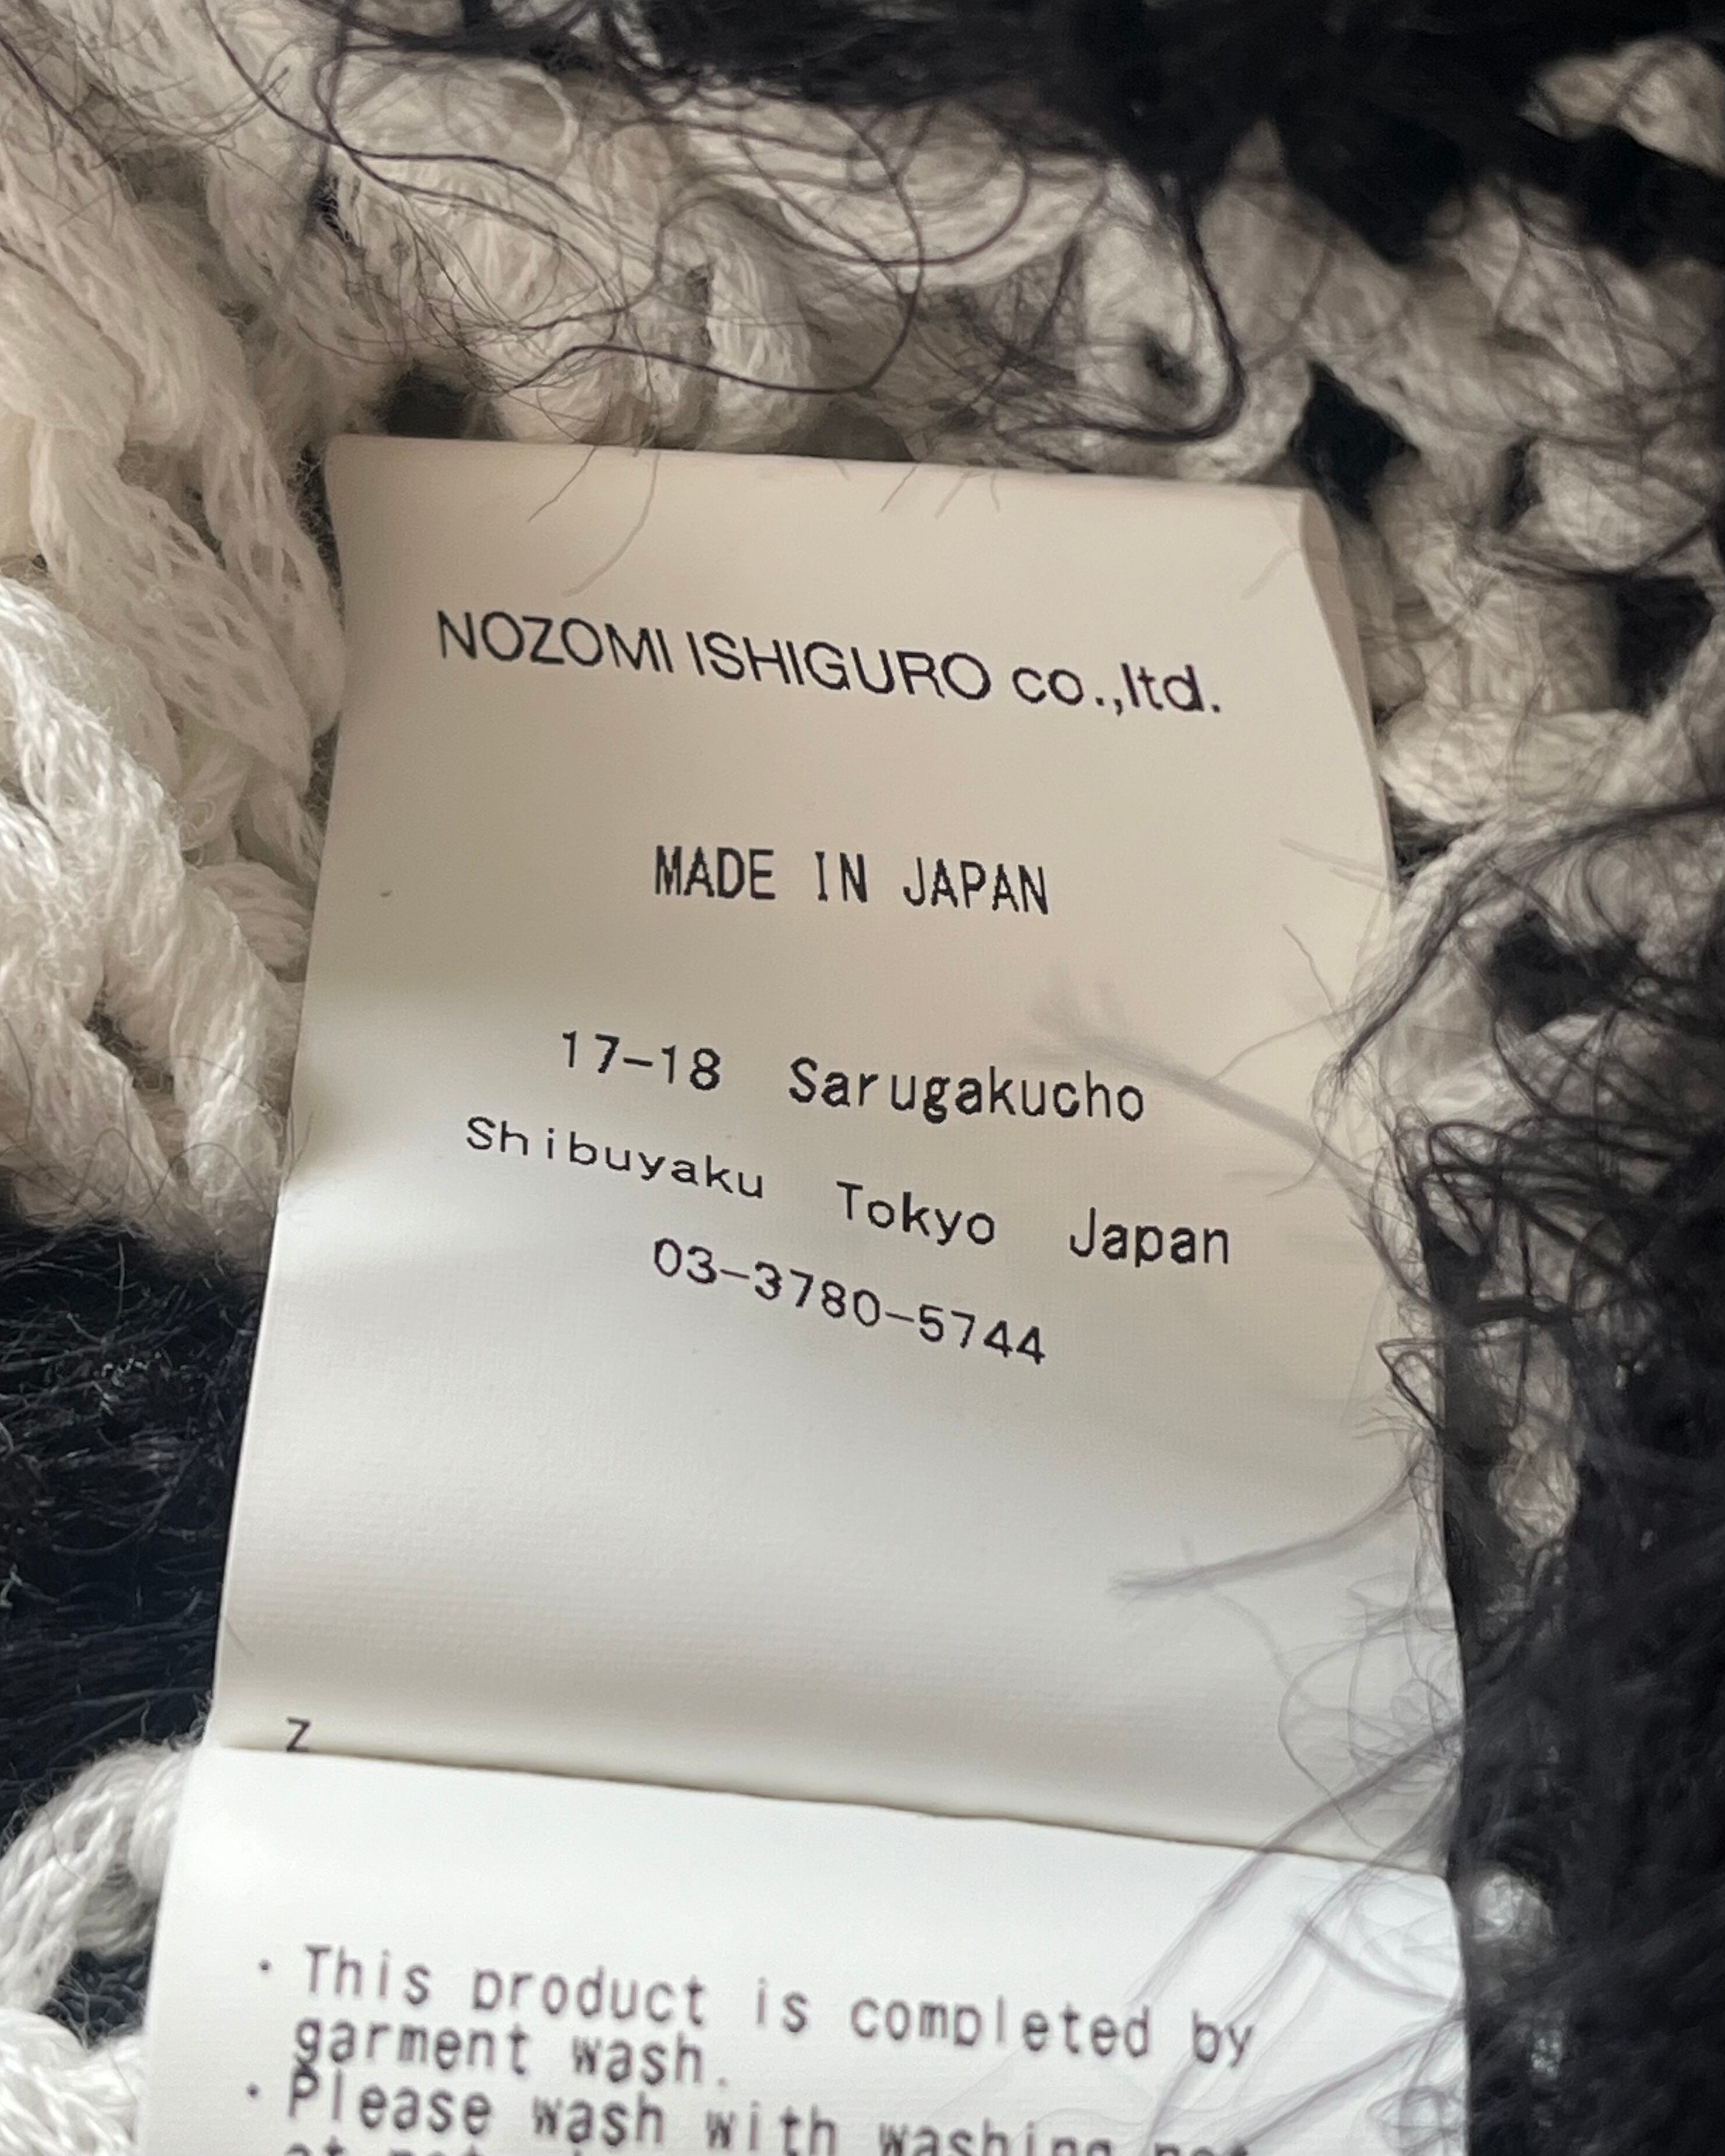 NOZOMI ISHIGURO co.,ltd.
MADE IN JAPAN
17-18 Sarugakucho
Shibuyaku Tokyo Japan
03-3780-5744
Z
・This product is completed by
garment wash.
・Please wash with washing net
at